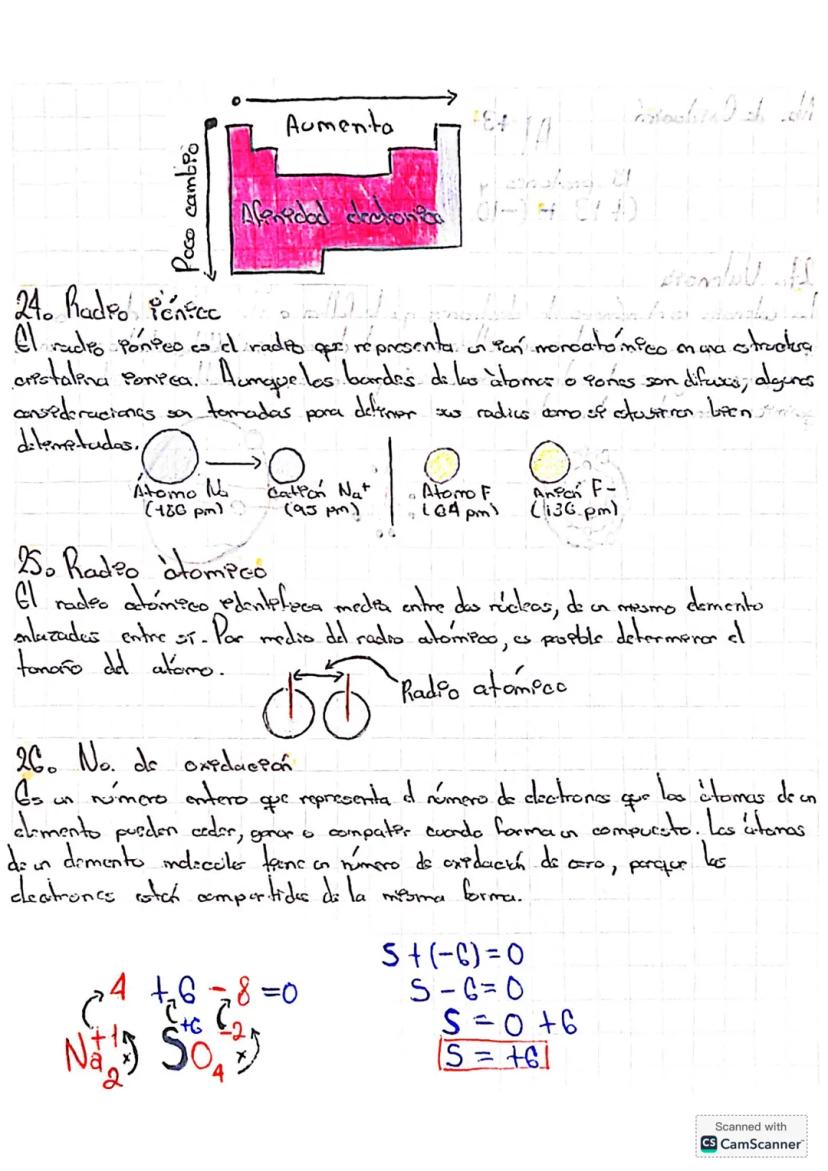 Aumenta
Poco cambio
Afinidad electronica
24. Radio iónico
El radio iónico es el radio que representa un ión monoatómico en una estructura
cristalina ionica. Aunque los bordes de los àtomos o iones son difusos, algunas
consideraciones son tomadas para definir sus radios como si estuvieran bien
delimitados.
Átomo Na → Catión Na⁺ | Átomo F Anión F-
(186 pm) (95 pm) (64 pm) (136 pm)
25. Radio àtomico
El radio atómico identifica media entre dos núcleos, de un mismo elemento
enlazados entre sí. Por medio del radio atómico, es posible determinar el
tamaño del atomo.
Radio atómico
26. No. de oxidación
Es un número entero que representa el número de electrones que los átomos de un
elemento pueden ceder, ganar o compatir cuando forma un compuesto. Los átomos
de un elemento molecular tiene un número de oxidación de cero, porque los
electrones están compartidos de la misma forma.
4 +6 - 8 =0
Na₂⁺¹ S⁺⁶ O₄⁻²
S + (-6) = 0
S - 6 = 0
S = 0 + 6
S = +6
Scanned with
CS CamScanner